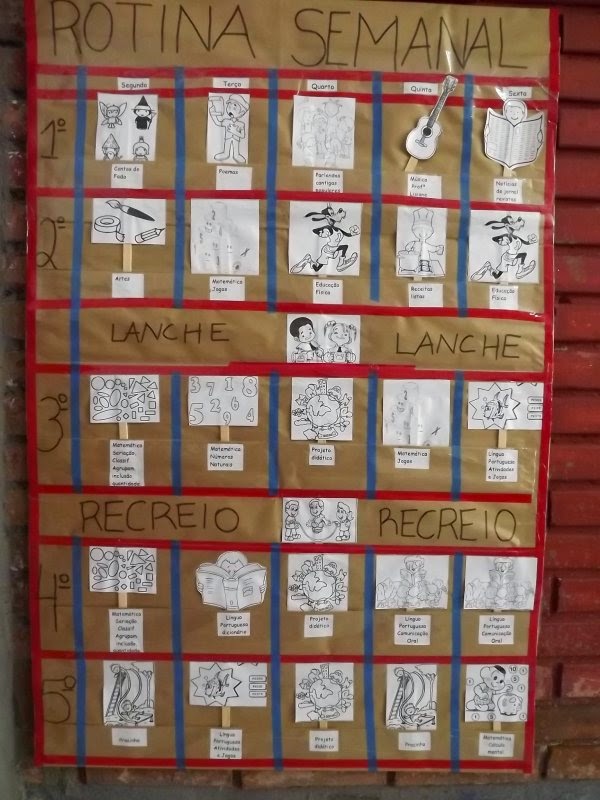 ROTINA SEMANAL
Segunda Terça Quarta Quinta Sexta
1º
Contos de
Fada
Poemas
Parlendas
cantigas
populares
Música
Profª
Notícias
de jornal
revistas
2º
Artes
Matemática
Jogos
Educação
Física
Receitas
listas
Educação
Física
LANCHE LANCHE
3º
Matemática
Seriação
Classif.
Agrupam.
inclusão
quantidade
3 7 1 8
5 2 9 6 4
Matemática
Números
Naturais
Projeto
didático
Matemática
Jogos
Língua
Portuguesa
Atividades
e Jogos
RECREIO RECREIO
4º
Matemática
Seriação
Classif
Agrupam.
inclusão
quantidade
Língua
Portuguesa
dicionário
Projeto
didático
Língua
Portuguesa
Comunicação
Oral
Língua
Portuguesa
Comunicação
Oral
5º
Pracinha
Língua
Portuguesa
Atividades
e Jogos
Projeto
didático
Pracinha
Matemática
Cálculo
mental